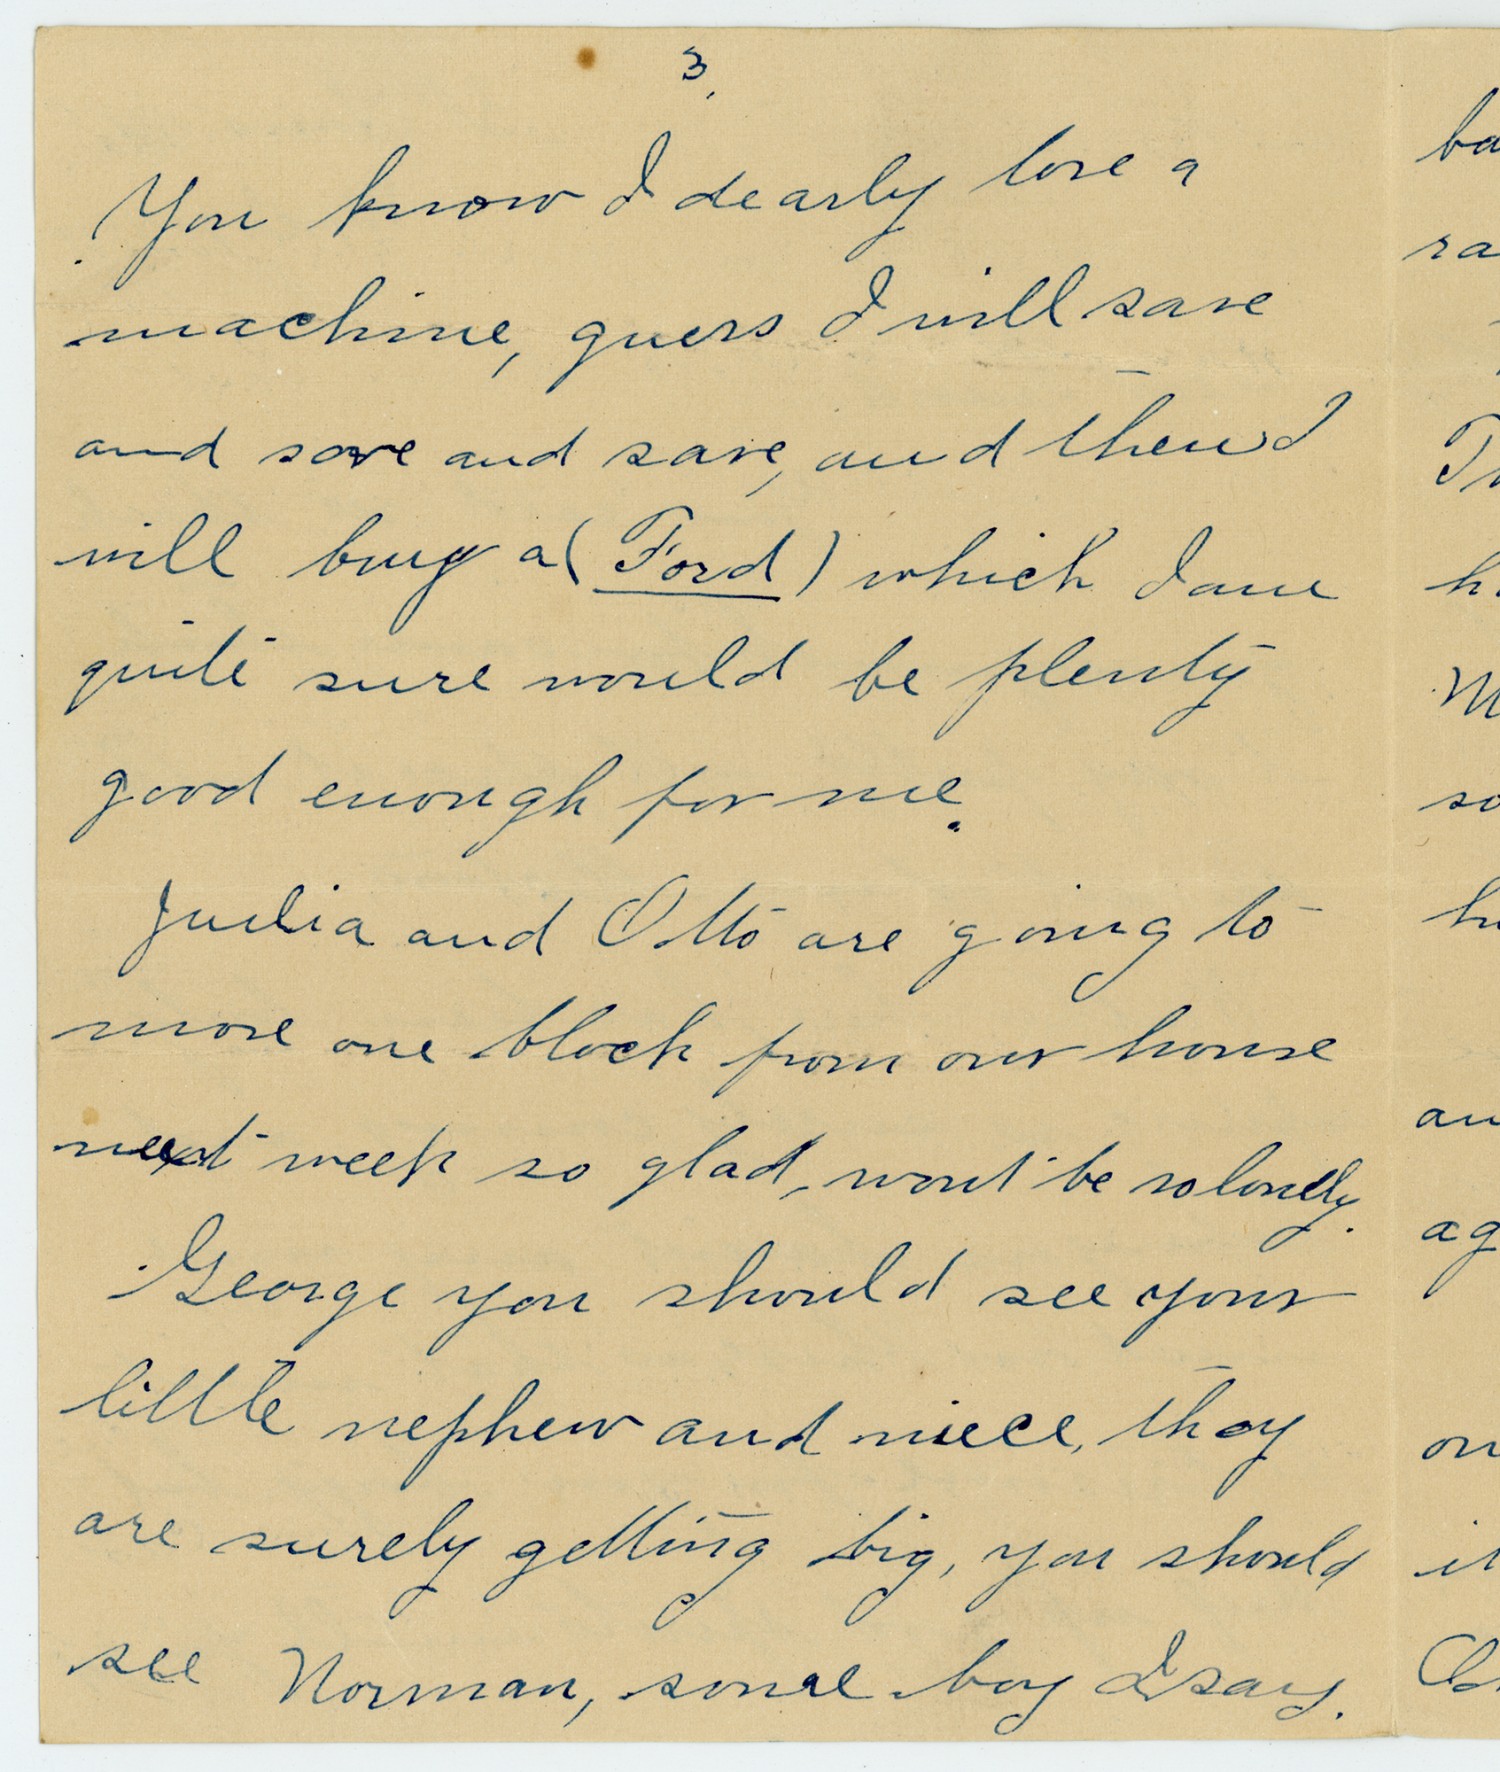 3,
You know I dearly love a
machine, guess I will save
and save and save, and then I
will buy a (Ford) which I am
quite sure would be plenty
good enough for me.
Julia and Otto are going to
move one block from our house
next week so glad, wont be so lonely.
George you should see your
little nephew and niece, they
are surely getting big, you should
see Norman, some boy I say.
ba
ra
h
M
so
h
au
ag
on
it